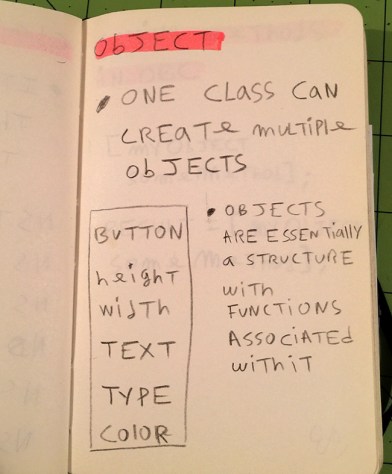 OBJECT
• ONE CLASS CAN
CREATE MULTIPLE
OBJECTS
BUTTON
height
width
TEXT
TYPE
COLOR
• OBJECTS
ARE ESSENTIALLY
a STRUCTURE
with
FUNCTIONS
ASSOCIATEd
withiT